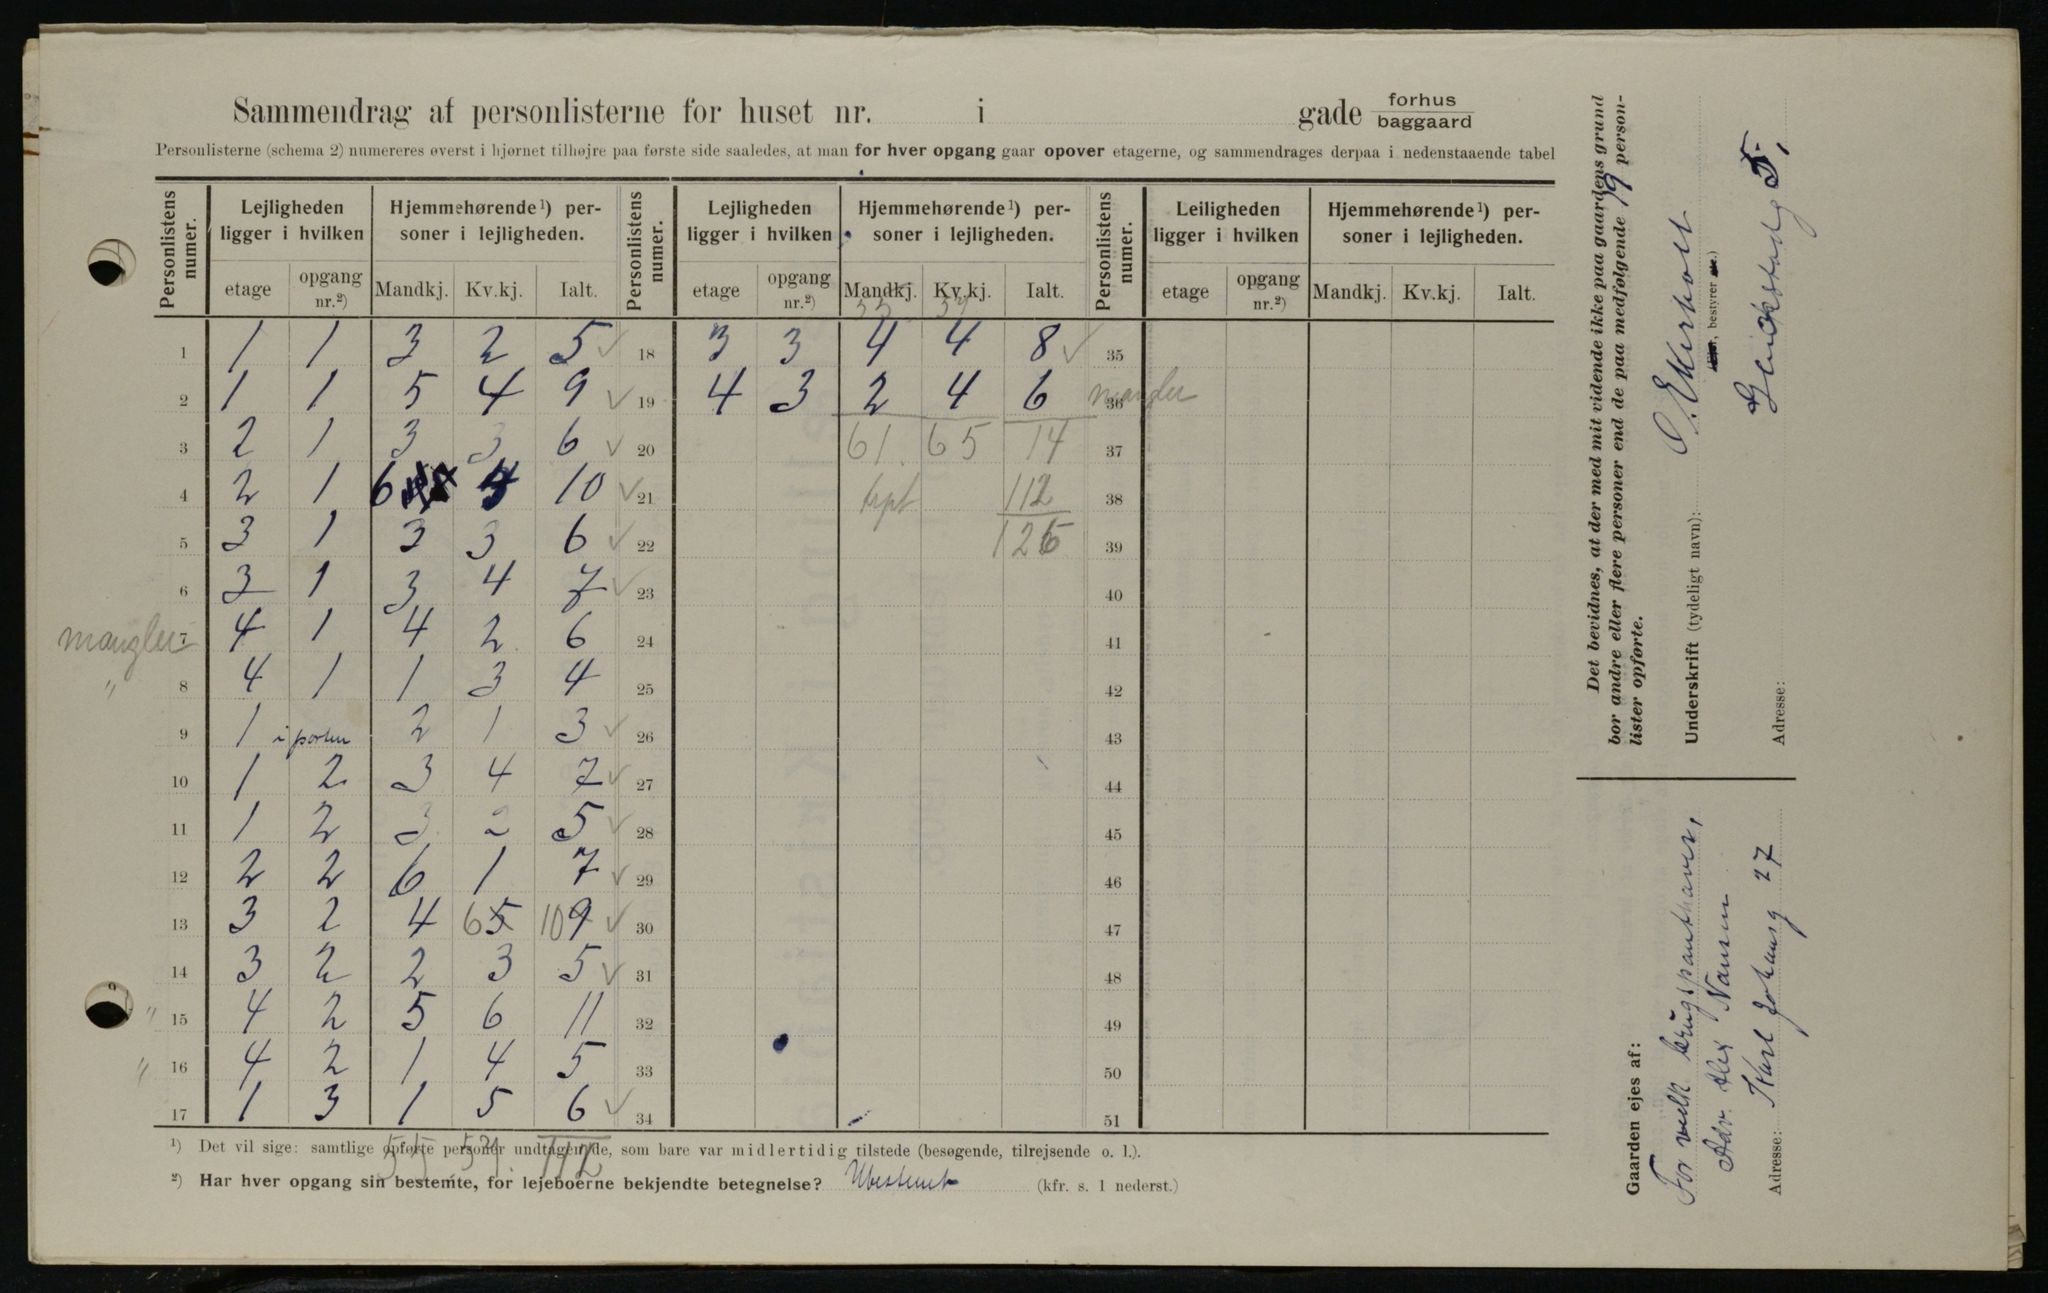 Sammendrag af personlisterne for huset nr. i gade forhus baggaard
Personlisterne (schema 2) numereres øverst i hjørnet tilhøjre paa første side saaledes, at man for hver opgang gaar opover etagerne, og sammendrages derpaa i nedenstaaende tabel
Personlistens numer. Lejligheden ligger i hvilken Hjemmehørende¹) personer i lejligheden. Personlistens numer. Lejligheden ligger i hvilken Hjemmehørende¹) personer i lejligheden. Personlistens numer. Leiligheden ligger i hvilken Hjemmehørende¹) personer i lejligheden.
etage opgang nr.²) Mandkj. Kv.kj. Ialt. etage opgang nr.²) Mandkj. Kv.kj. Ialt. etage opgang nr.²) Mandkj. Kv.kj. Ialt.
1 1 1 3 2 5 18 3 3 4 4 8 35
2 1 1 5 4 9 19 4 3 2 4 6 36 mangler
3 2 1 3 3 6 20 61 65 14 37
4 2 1 6 4 10 21 trpt 112 38
5 3 1 3 3 6 22 126 39
6 3 1 3 4 7 23 40
mangler 7 4 1 4 2 6 24 41
" 8 4 1 1 3 4 25 42
9 1 i porten 2 1 3 26 43
10 1 2 3 4 7 27 44
11 1 2 3 2 5 28 45
12 2 2 6 1 7 29 46
13 3 2 4 6 5 10 9 30 47
14 3 2 2 3 5 31 48
" 15 4 2 5 6 11 32 49
" 16 4 2 1 4 5 33 50
17 1 3 1 5 6 34 51
55 57 112
¹) Det vil sige: samtlige opførte personer undtagen de, som bare var midlertidig tilstede (besøgende, tilrejsende o. l.).
²) Har hver opgang sin bestemte, for lejeboerne bekjendte betegnelse? Ubestemt (kfr. s. 1 nederst.)
Det bevidnes, at der med mit vidende ikke paa gaardens grund
bor andre eller flere personer end de paa medfølgende 19 person-
lister opførte.
Underskrift (tydeligt navn):
(Ejer, bestyrer etc.)
Adresse: 5,
Gaarden ejes af:
For
Adv. Alex Nansen
Adresse: Karl Johansg 27